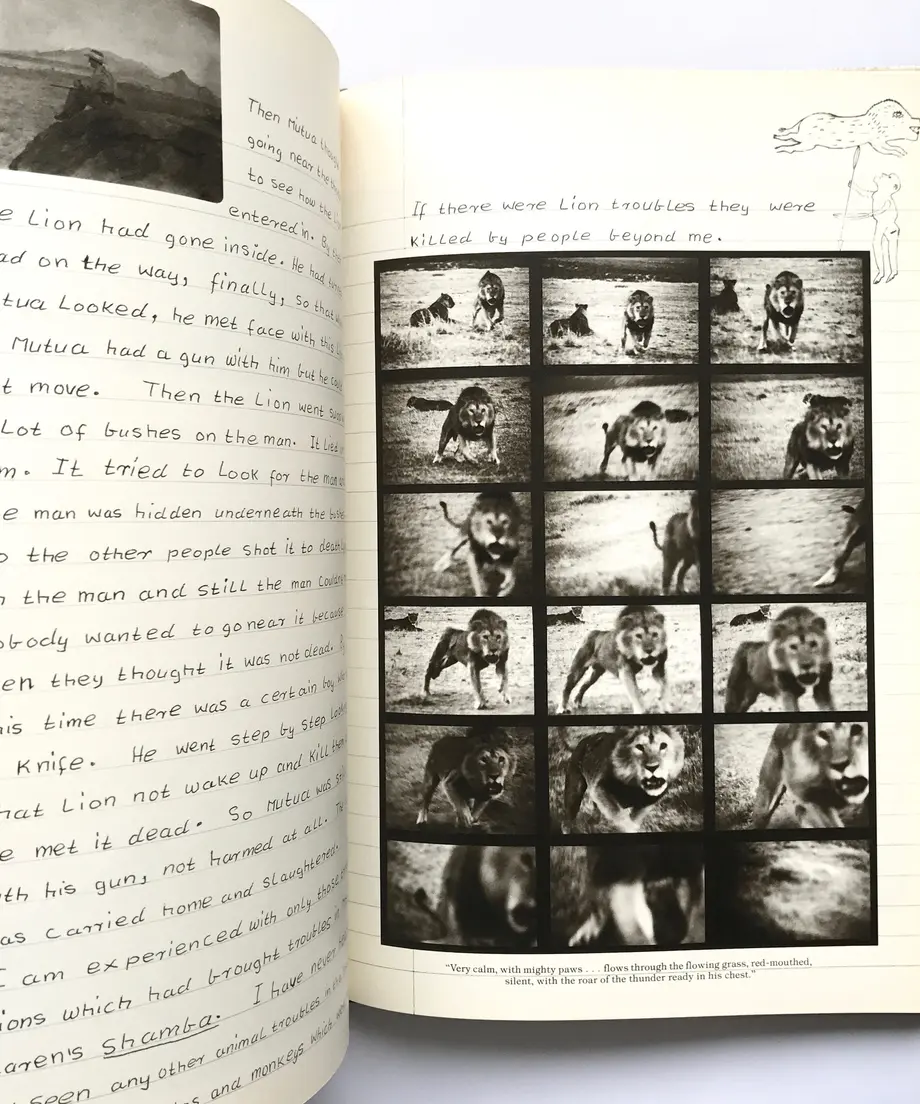 Then Mutua
going near the
to see how the
entered in. By
Lion had gone inside. He had
on the way, finally, so that
Looked, he met face with this
Mutua had a gun with him but he
move. Then the Lion went
Lot of bushes on the man. It Lied
It tried to Look for the man
man was hidden underneath the
the other people shot it to death
the man and still the man
wanted to go near it because
they thought it was not dead.
time there was a certain boy
Knife. He went step by step
Lion not wake up and Kill
met it dead. So Mutua was
his gun, not harmed at all.
carried home and slaughtered.
I am experienced with only those
which had brought troubles in
Shamba. I have never
seen any other animal troubles in
and monkeys which
If there were Lion troubles they were
Killed by people beyond me.
“Very calm, with mighty paws . . . flows through the flowing grass, red-mouthed,
silent, with the roar of the thunder ready in his chest.”